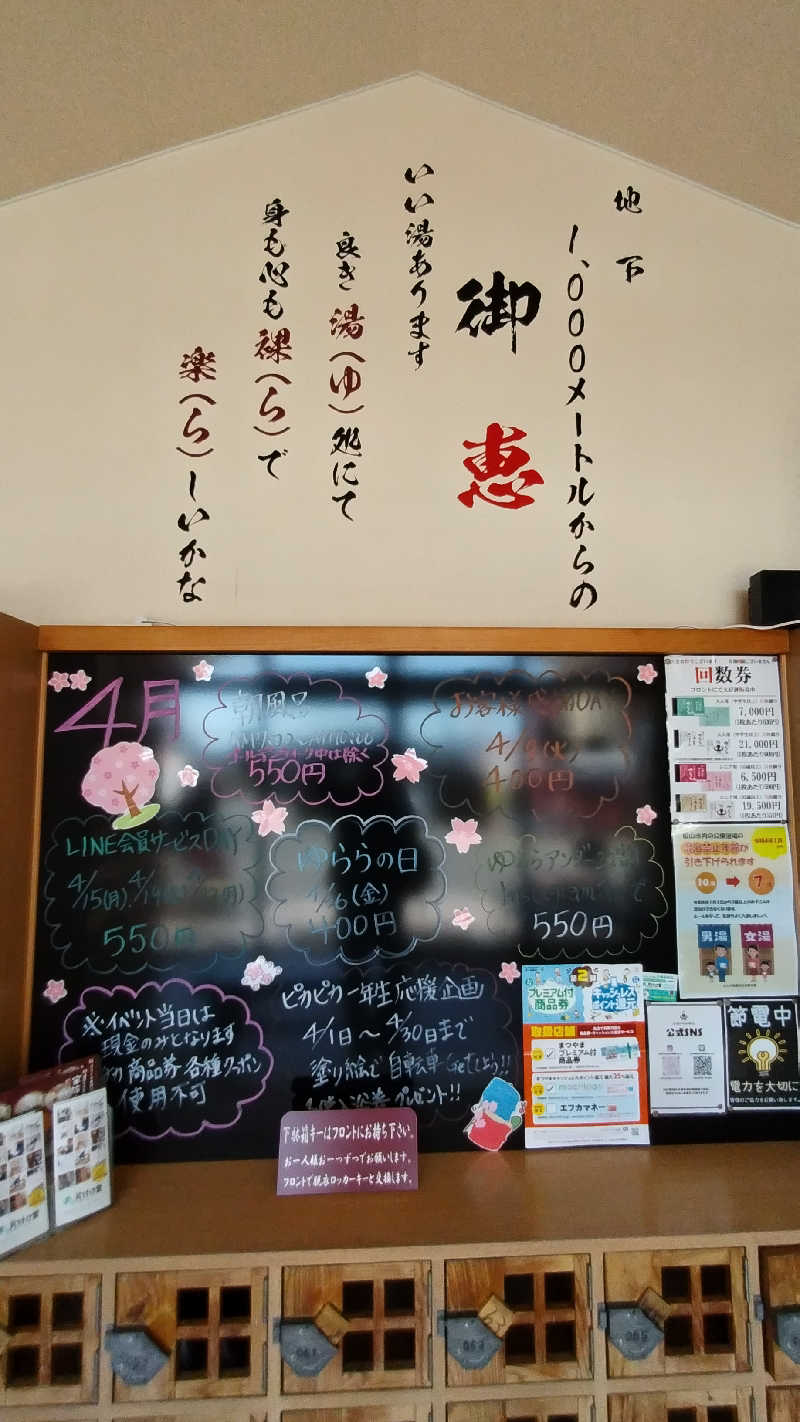 地下
1,000メートルからの
御恵
いい湯あります
良き湯(ゆ)処にて
身も心も裸(ら)で
楽(ら)しいかな
4月
朝風呂
550円
お客様感謝DAY
4/9(火)
400円
LINE会員サービスDAY
4/15(月)
550円
ゆららの日
4/26(金)
400円
550円
※イベント当日は
現金のみとなります
商品券 各種クーポン
使用不可
ピカピカ一年生応援企画
4/1日〜4/30日まで
塗り絵で自転車getしよう!!
プレゼント!!
下駄箱キーはフロントにお持ち下さい。
お一人様お一つずつでお願いします。
フロントで脱衣ロッカーキーと交換します。
回数券
7,000円
21,000円
6,500円
19,500円
引き下げられます
10歳
7歳
男湯
女湯
第2弾
プレミアム付
商品券
キャッシュレス
ポイント還元
取扱店舗
まつやま
プレミアム付
商品券
エフカマネー
公式SNS
節電中
電力を大切に
064
065